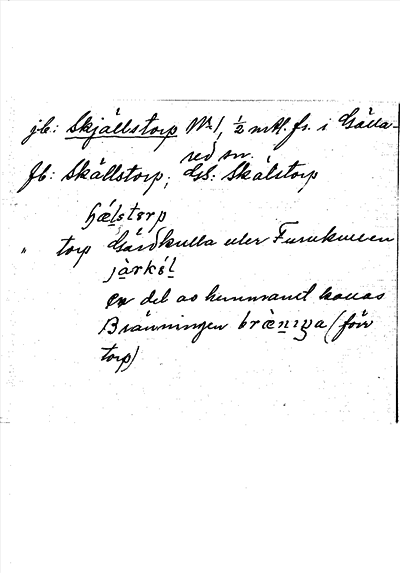 jb: Skjällstorp No 1, ½ mtl. fr. i Gälla-
red sn.
fb: Skällstorp; GS: Skälstorp
hæ̀lstɵrp
" torp Gärdkulla eller Furukullen
jàrkúl
en del av hemmanet kallas
Bränningen brænɪŋa (förr
torp)